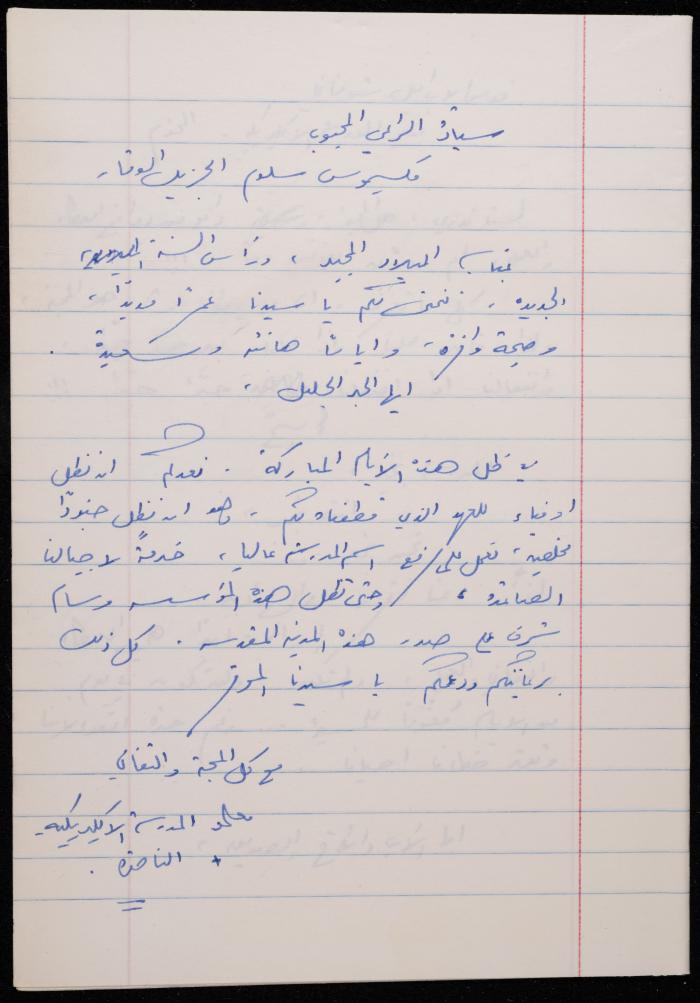 سيادة الراعي المحبوب
مكسيموس سلوم الجزيل الوقار
بمناسبة الميلاد المجيد، ورأس السنة الميلادية
الجديدة، نتمنى لكم يا سيدنا عمراً مديداً،
وصحة وافرة، واياماً هانئة وسعيدة.
ايها الحبر الجليل،
في ظل هذه الأيام المباركة. نعدكم ان نظل
اوفياء للعهد الذي قطعناه لكم، وهو ان نظل جنوداً
مخلصين، نعمل على رفع اسم المدرسة عاليا، خدمةً لاجيالنا
الصاعدة، وحتى تظل هذه المؤسسه وسام
شرف على صدر هذه المدينه المقدسه. كل ذلك
برعايتكم ودعمكم يا سيدنا الموقر
مع كل المحبة والتفاني
معلمو المدرسة الاكليريكيه
الناصرة.